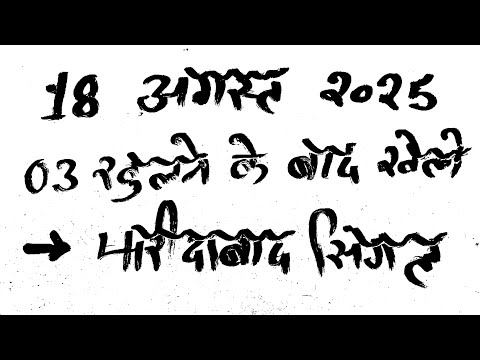 18 अगस्त २०२5
03 के बाद खेलो
→ फरीदाबाद सिगल